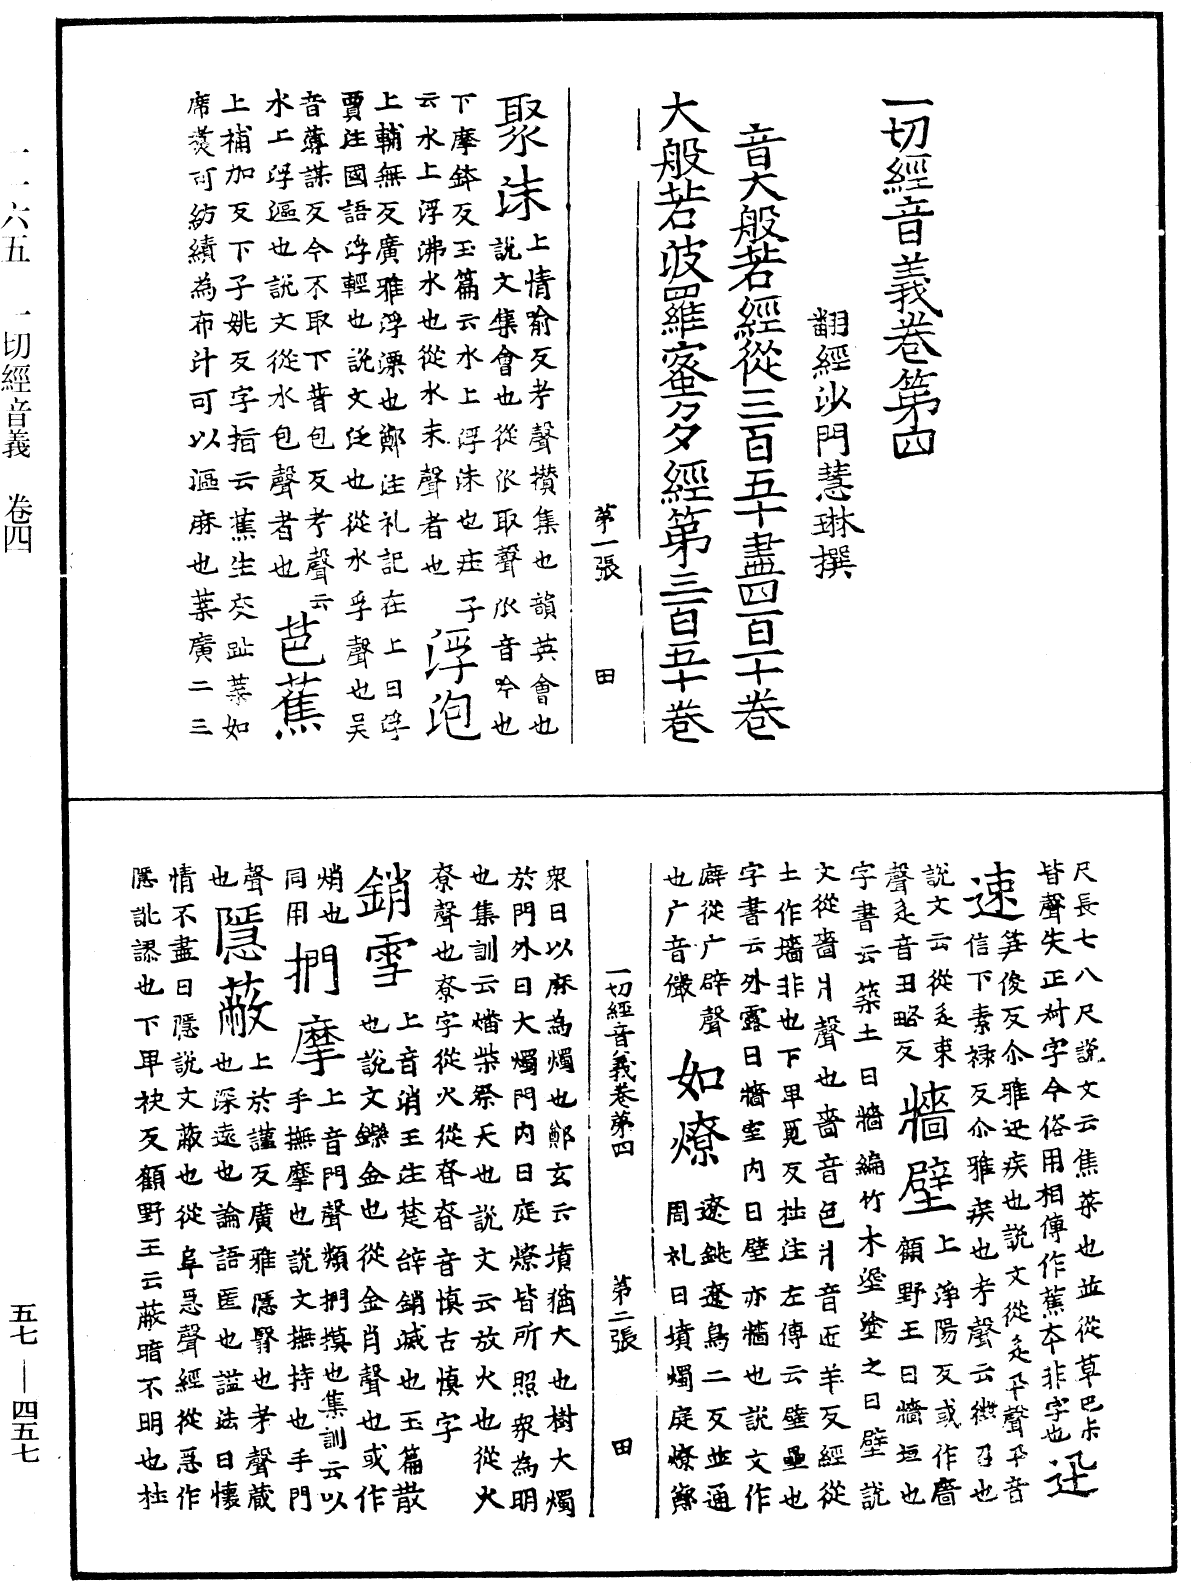 一切經音義卷第四
翻經沙門慧琳撰
音大般若經從三百五十盡四百一十卷
大般若波羅蜜多經第三百五十卷
第一張 田
聚沫 上情喻反考聲攢集也韻英會也
說文集會也從㐺取聲㐺音吟也
下摩鉢反玉篇云水上浮沫也莊子
云水上浮沸水也從水末聲者也 浮泡
上輔無反廣雅浮漂也鄭注礼記在上曰浮
賈注國語浮輕也說文泛也從水孚聲也吴
音薄謀反今不取下普包反考聲云
水上浮漚也說文從水包聲者也 芭蕉
上補加反下子姚反字指云蕉生交趾葉如
席煑可紡績為布汁可以漚麻也葉廣二三
尺長七八尺說文云焦菜也並從草巴焦
皆聲失正對字今俗用相傳作蕉本非字也 迅
速 笋俊反尒雅迅疾也說文從辵卂聲卂音
信下素禄反尒雅疾也考聲云徴召也
說文云從辵束
聲辵音丑略反 牆壁 上淨陽反或作廧
顧野王曰牆垣也
字書云築土曰牆編竹木垽塗之曰壁說
文從嗇爿聲也嗇音色爿音匠羊反經從
土作墻非也下卑覓反杜注左傳云壁壘也
字書云外露曰牆室内曰壁亦牆也說文作
廦從广辟聲
也广音儼 如燎 遼銚遼鳥二反並通
周礼曰墳燭庭燎鄭
一切經音義卷第四 第二張 田
衆曰以麻為燭也鄭玄云墳猶大也樹大燭
於門外曰大燭門内曰庭燎皆所照衆為明
也集訓云燔柴祭天也說文云放火也從火
尞聲也尞字從火從昚昚音慎古慎字
銷雪 上音消王注楚辭銷滅也玉篇散
也說文鑠金也從金肖聲也或作
焇也
同用 捫摩 上音門聲類捫摸也集訓云以
手撫摩也說文撫持也手門
聲
也 隱蔽 上於謹反廣雅隱翳也考聲蔵
也深遠也論語匿也謚法曰懷
情不盡曰隱說文蔽也從阜㥯聲經從㥯作
隱訛謬也下卑袂反顧野王云蔽暗不明也杜
一一六五 一切經音義 卷四
五七—四五七